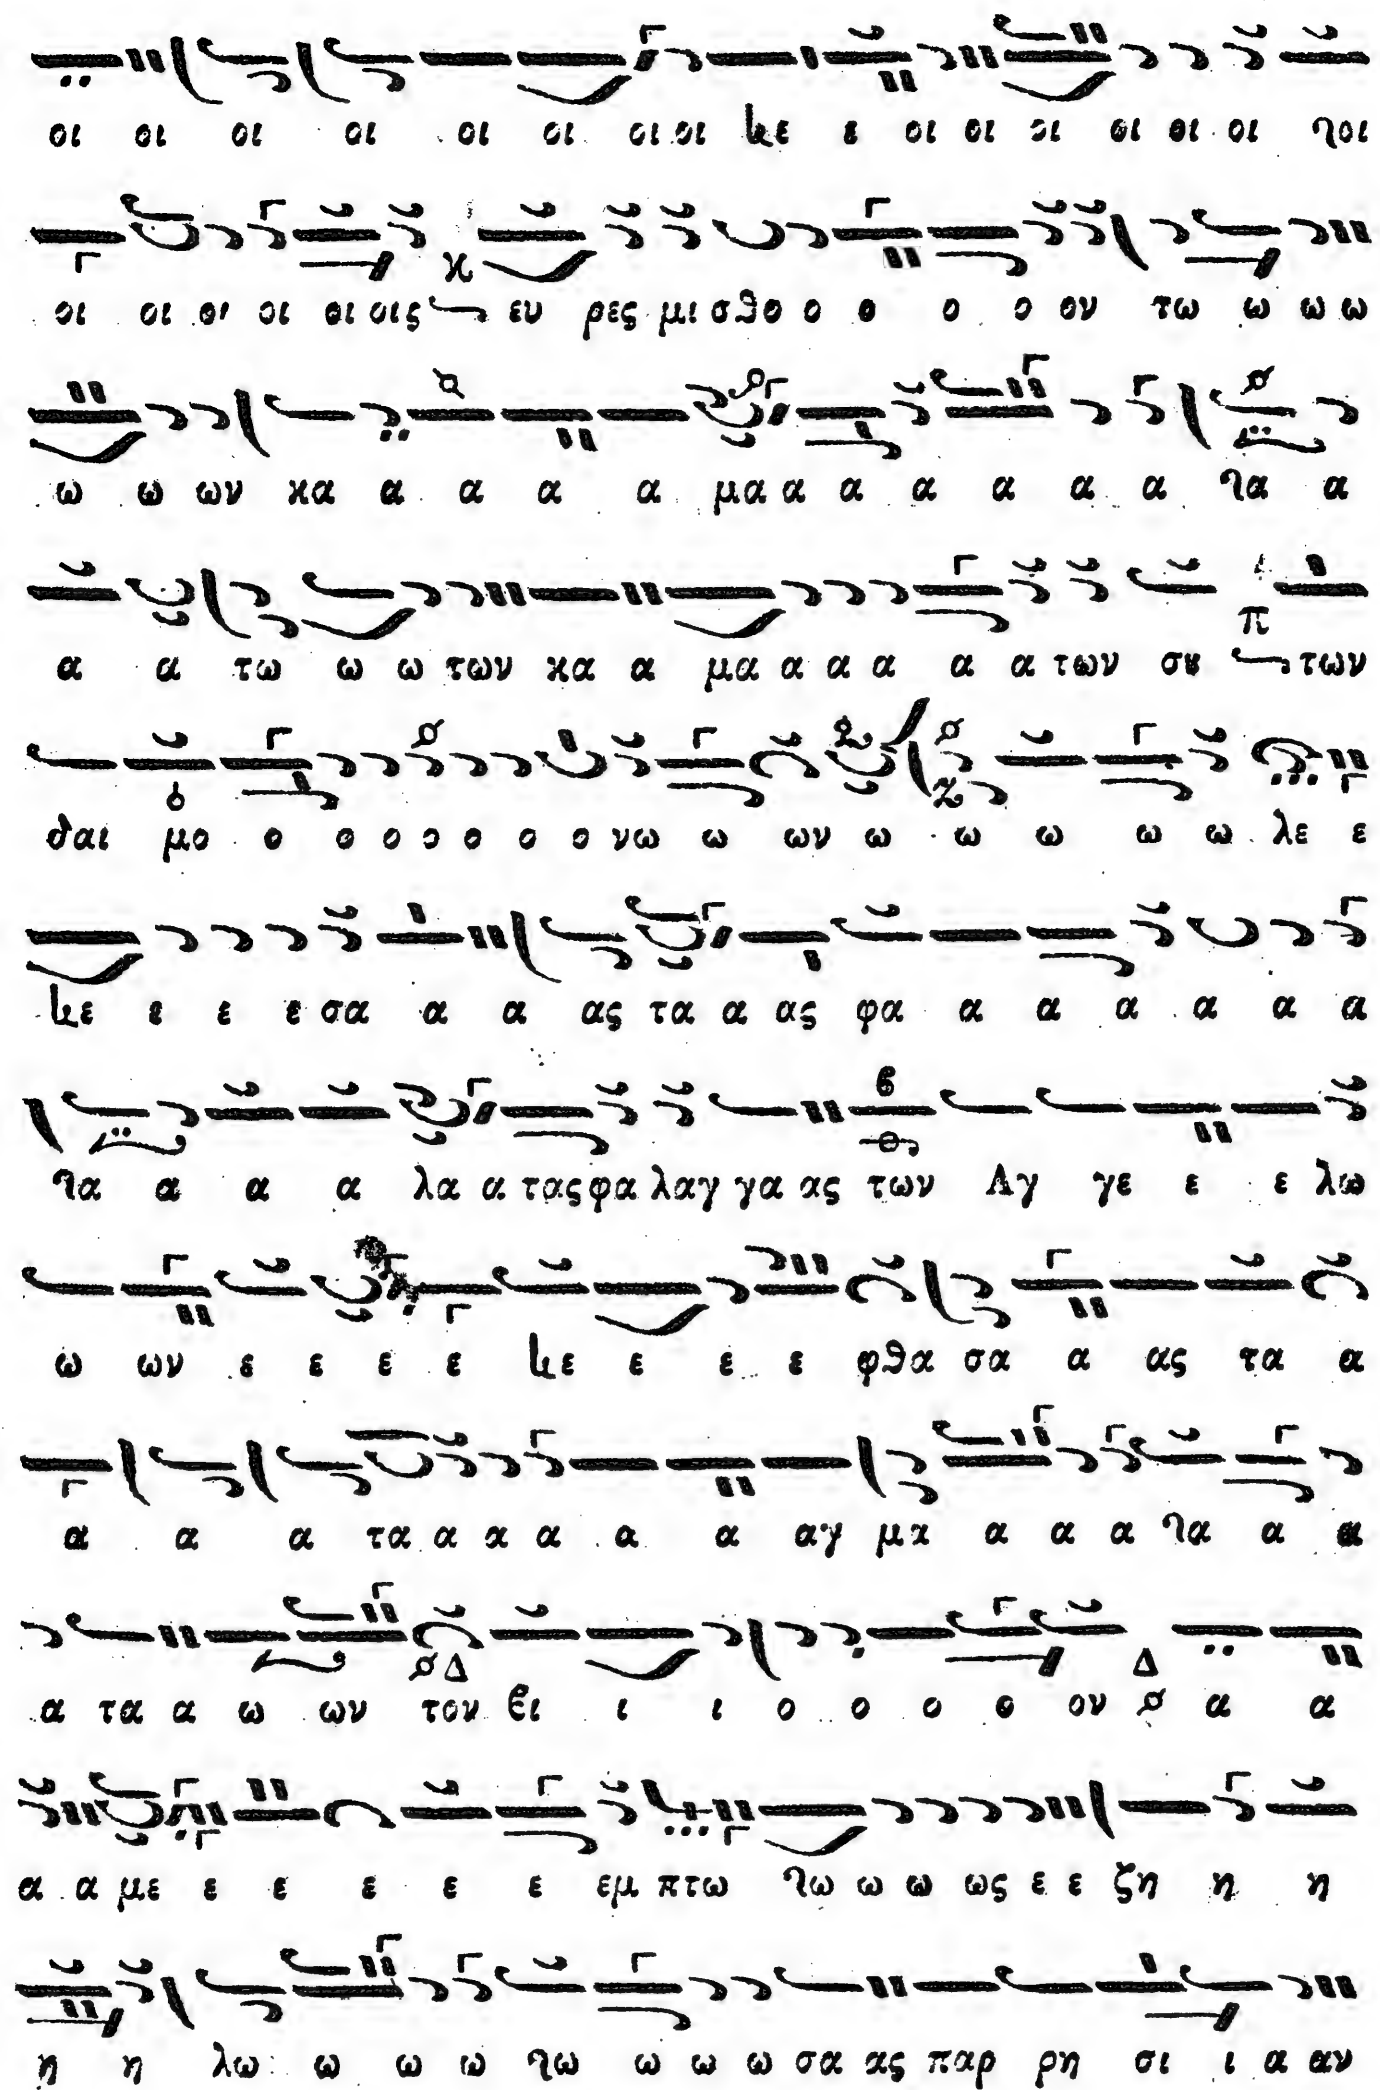 οι οι οι οι οι οι οι οι κε ε οι οι οι οι οι οι τοι
οι οι οι οι οι οις ευ ρες μι σθο ο ο ο ο ον τω ω ω ω
ω ω ων κα α α α α μα α α α α α α τα α
α α τω ω ω των κα α μα α α α α α των συ των
δαι μο ο ο ο ο ο ο ο νω ω ων ω ω ω ω ω λε ε
κε ε ε ε σα α α ας τα α ας φα α α α α α α
τα α α α λα α τας φα λαγ γα ας των Αγ γε ε ε λω
ω ων ε ε ε ε κε ε ε ε φθα σα α ας τα α
α α α τα α α α α α αγ μα α α α τα α α
α τα α ω ων τον βι ι ι ο ο ο ο ον α α
α α με ε ε ε ε ε εμ πτω τω ω ω ως ε ε ζη η η
η η λω ω ω ω τω ω ω ω σα ας παρ ρη σι ι α αν